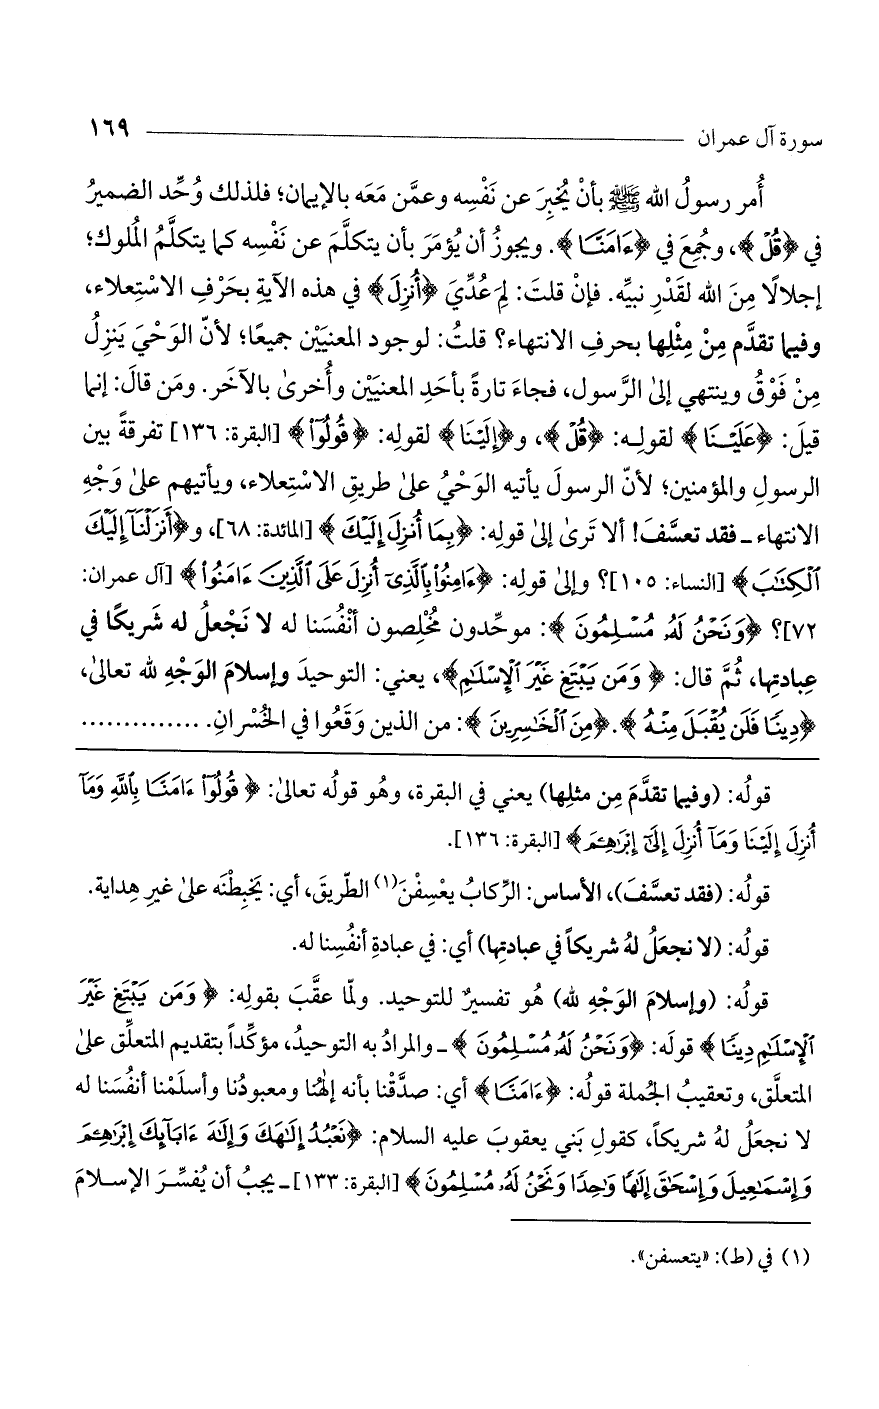 سورة آل عمران ١٦٩
أُمر رسولُ الله ﷺ بأنْ يُخبِرَ عن نَفْسِه وعمَّن مَعَه بالإيمان؛ فلذلك وُحِّد الضميرُ
في ﴿قُلْ﴾، وجُمِعَ في ﴿ءَامَنَّا﴾. ويجوزُ أن يُؤمَرَ بأن يتكلَّمَ عن نَفْسِه كما يتكلَّمُ المُلوك؛
إجلالًا مِنَ الله لقَدْرِ نبيِّه. فإنْ قلتَ: لِمَ عُدِّيَ ﴿أُنزِلَ﴾ في هذه الآيةِ بحَرْفِ الاسْتِعلاء،
وفيما تقدَّم مِنْ مِثْلِها بحرفِ الانتهاء؟ قلتُ: لوجود المعنيَيْن جميعًا؛ لأنّ الوَحْيَ يَنزِلُ
مِنْ فَوْقُ وينتهي إلىٰ الرَّسول، فجاءَ تارةً بأحَدِ المعنيَيْن وأُخرىٰ بالآخَر. ومَن قالَ: إنما
قيلَ: ﴿عَلَيْنَا﴾ لقولِه: ﴿قُلْ﴾، و﴿إِلَيْنَا﴾ لقولِه: ﴿قُولُوٓا۟﴾ [البقرة: ١٣٦] تفرقةً بين
الرسولِ والمؤمنين؛ لأنّ الرسولَ يأتيه الوَحْيُ علىٰ طريقِ الاسْتِعلاء، ويأتيهم علىٰ وَجْهِ
الانتهاء ـ فقد تعسَّفَ! ألا تَرىٰ إلىٰ قولِه: ﴿بِمَا أُنزِلَ إِلَيْكَ﴾ [المائدة: ٦٨]، و﴿أَنزَلْنَآ إِلَيْكَ
ٱلْكِتَٰبَ﴾ [النساء: ١٠٥]؟ وإلىٰ قولِه: ﴿ءَامِنُوا۟ بِٱلَّذِىٓ أُنزِلَ عَلَى ٱلَّذِينَ ءَامَنُوا۟﴾ [آل عمران:
٧٢]؟ ﴿وَنَحْنُ لَهُۥ مُسْلِمُونَ﴾: موحِّدون مُخْلِصون أنْفُسَنا له لا نَجْعلُ له شَريكًا في
عِبادتِها، ثُمَّ قال: ﴿وَمَن يَبْتَغِ غَيْرَ ٱلْإِسْلَٰمِ﴾، يعني: التوحيدَ وإسلامَ الوَجْهِ لله تعالىٰ،
﴿دِينًا فَلَن يُقْبَلَ مِنْهُ﴾. ﴿مِنَ ٱلْخَٰسِرِينَ﴾: من الذين وَقَعُوا في الخُسْرانِ. ..............
قولُه: (وفيما تقدَّمَ مِن مثلِها) يعني في البقرة، وهُو قولُه تعالىٰ: ﴿قُولُوٓا۟ ءَامَنَّا بِٱللَّهِ وَمَآ
أُنزِلَ إِلَيْنَا وَمَآ أُنزِلَ إِلَىٰٓ إِبْرَٰهِـۧمَ﴾ [البقرة: ١٣٦].
قولُه: (فقد تعسَّفَ)، الأساس: الرِّكابُ يعْسِفْنَ(١) الطّريقَ، أي: يَخبِطْنَه علىٰ غيرِ هِداية.
قولُه: (لا نجعَلُ لهُ شريكاً في عبادتِها) أي: في عبادةِ أنفُسِنا له.
قولُه: (وإسلامَ الوَجْهِ لله) هُو تفسيرٌ للتوحيد. ولمّا عقَّبَ بقولِه: ﴿وَمَن يَبْتَغِ غَيْرَ
ٱلْإِسْلَٰمِ دِينًا﴾ قولَه: ﴿وَنَحْنُ لَهُۥ مُسْلِمُونَ﴾ ـ والمرادُ به التوحيدُ، مؤكِّداً بتقديم المتعلِّق علىٰ
المتعلَّق، وتعقيبُ الجُملة قولُه: ﴿ءَامَنَّا﴾ أي: صدَّقْنا بأنه إلٰهُنا ومعبودُنا وأسلَمْنا أنفُسَنا له
لا نجعَلُ لهُ شريكاً، كقولِ بَني يعقوبَ عليه السلام: ﴿نَعْبُدُ إِلَٰهَكَ وَإِلَٰهَ ءَابَآئِكَ إِبْرَٰهِـۧمَ
وَإِسْمَٰعِيلَ وَإِسْحَٰقَ إِلَٰهًا وَٰحِدًا وَنَحْنُ لَهُۥ مُسْلِمُونَ﴾ [البقرة: ١٣٣] ـ يجبُ أن يُفسِّرَ الإسلامَ
(١) في (ط): «يتعسفن».